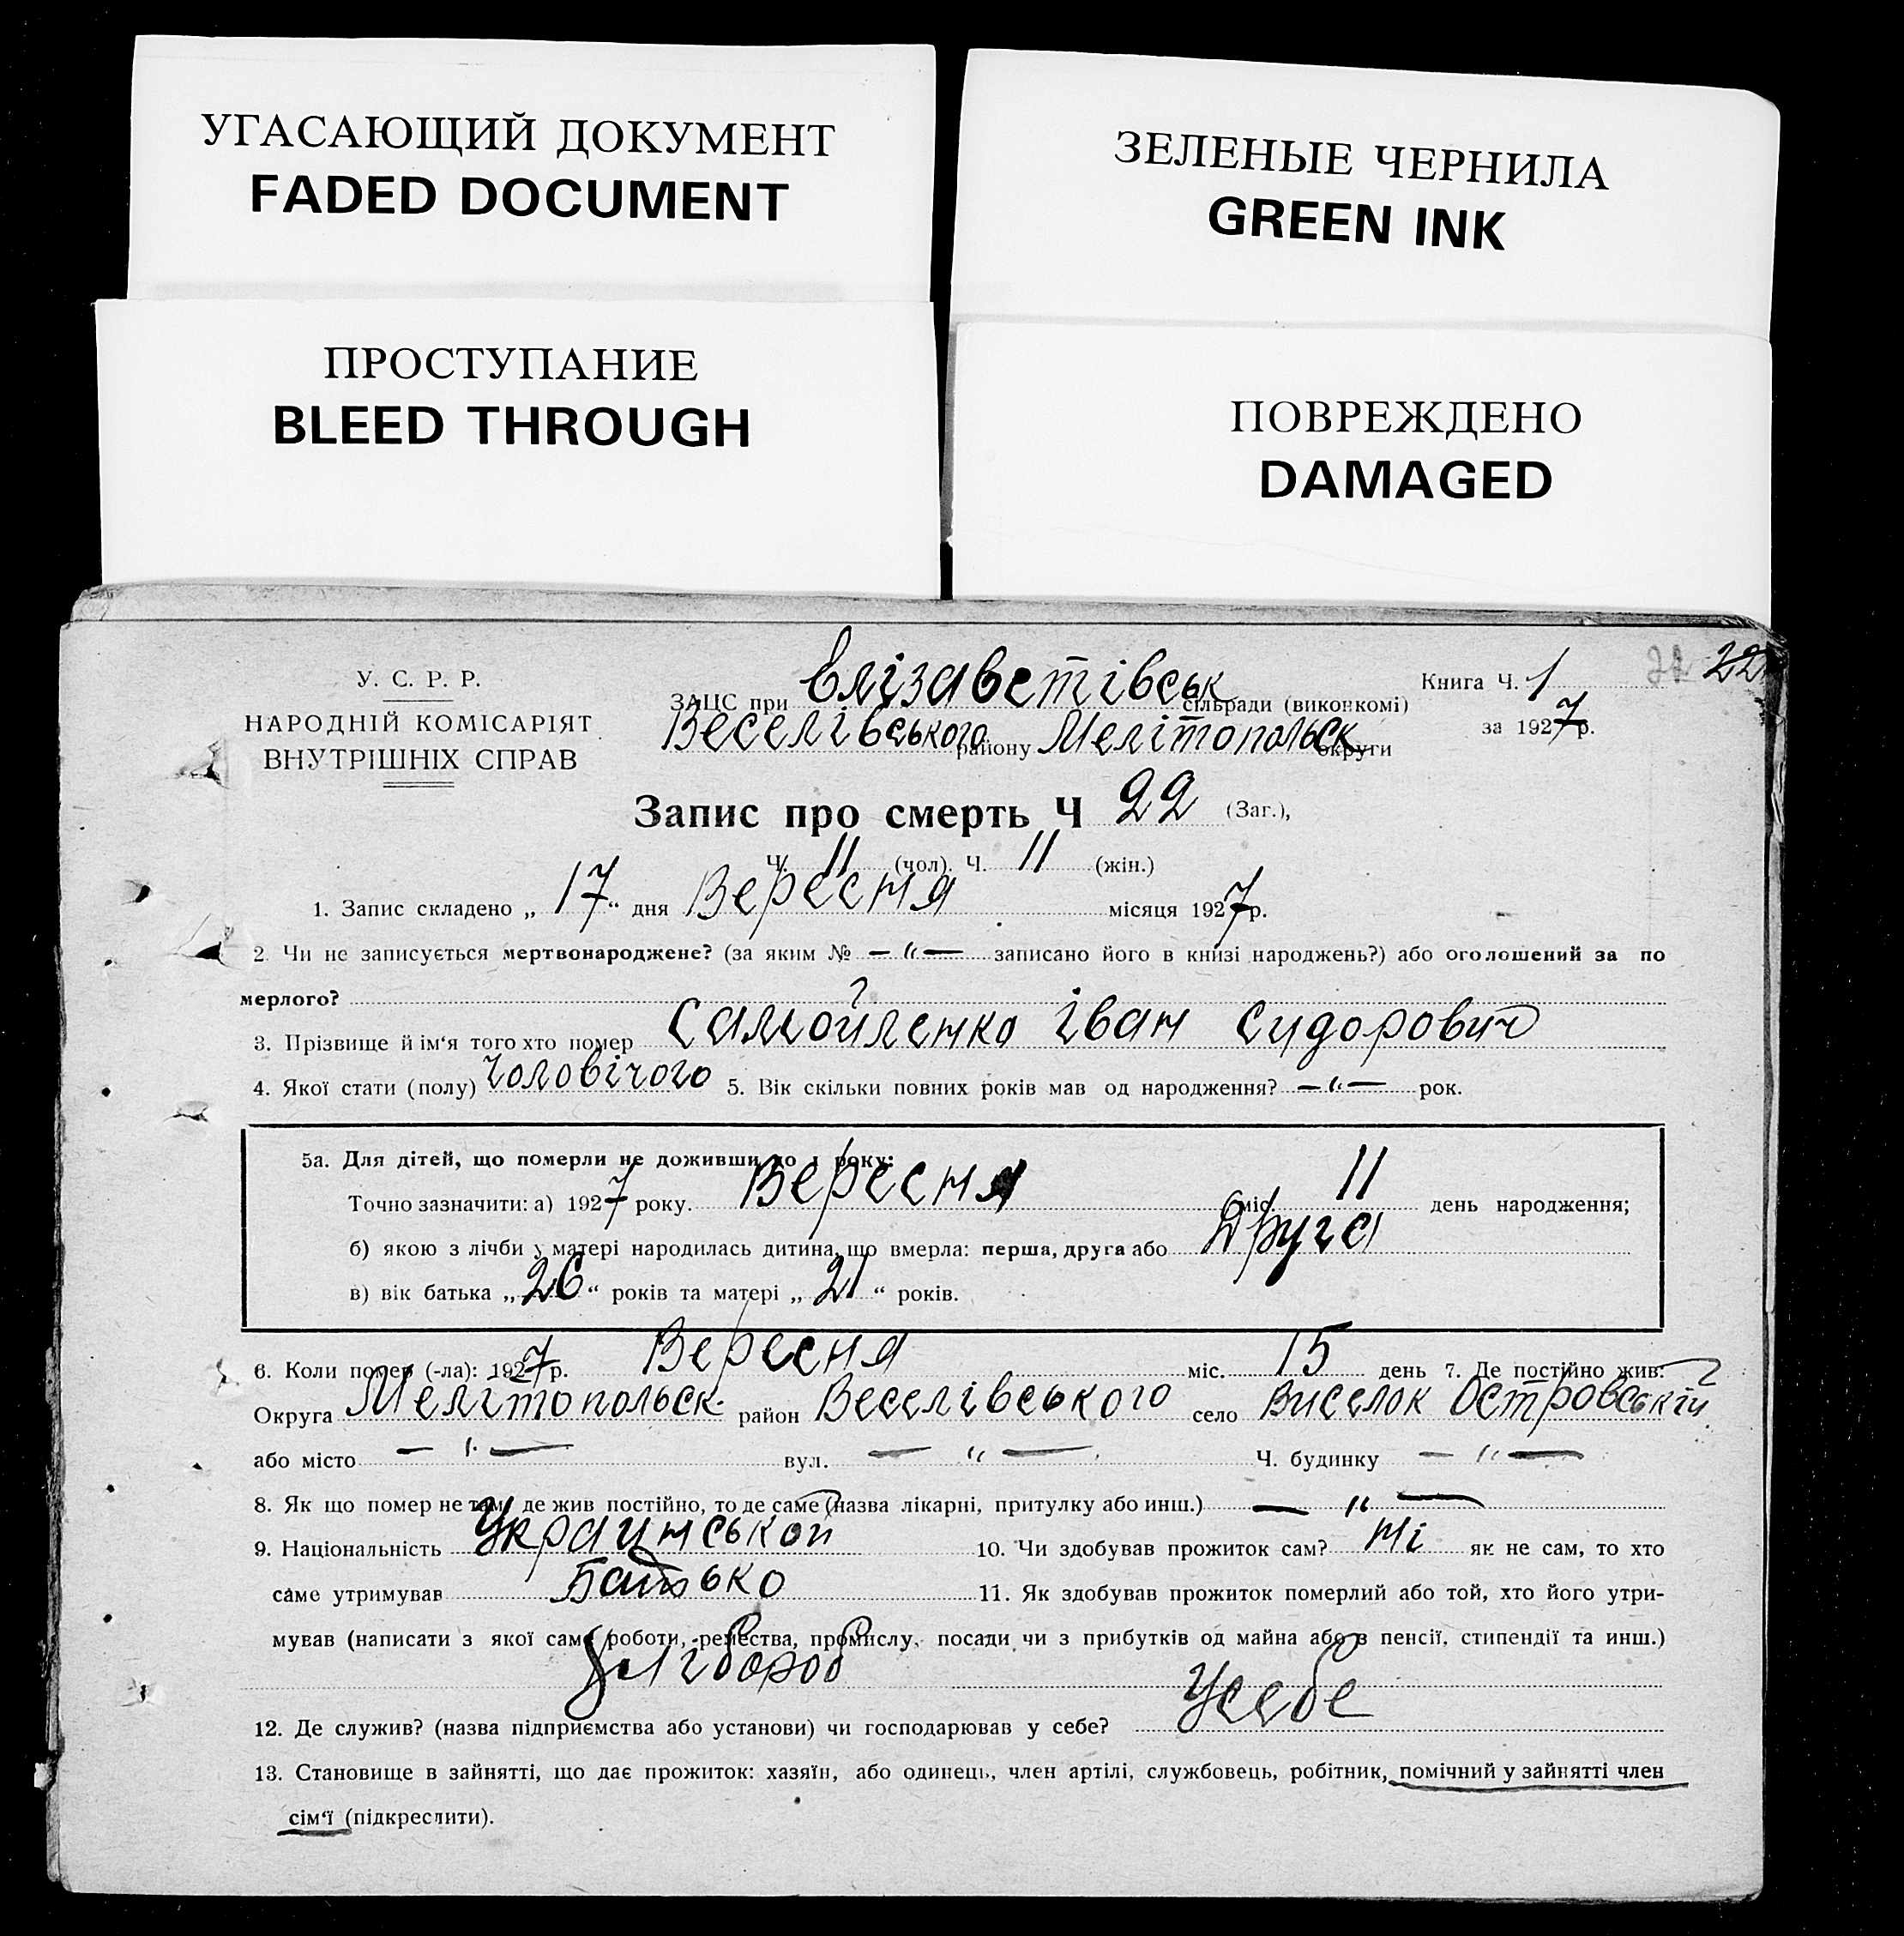 УГАСАЮЩИЙ ДОКУМЕНТ
FADED DOCUMENT
ЗЕЛЕНЫЕ ЧЕРНИЛА
GREEN INK
ПРОСТУПАНИЕ
BLEED THROUGH
ПОВРЕЖДЕНО
DAMAGED
У. С. Р. Р.
НАРОДНІЙ КОМІСАРІЯТ
ВНУТРІШНІХ СПРАВ
ЗАЦС при Єлізаветівськ сільради (виконкомі)
Веселівського району Мелітопольськ округи
Книга Ч. 1
22 22
за 1927 р.
Запис про смерть Ч 22 (Заг.),
Ч. 11 (чол). Ч. 11 (жін.)
1. Запис складено „ 17 “ дня Вересня місяця 1927 р.
2. Чи не записується мертвонароджене? (за яким № — „ — записано його в книзі народжень?) або оголошений за по
мерлого?
3. Прізвище й ім‘я того хто помер Самойленко Іван Сидорович
4. Якої стати (полу) Чоловічого 5. Вік скільки повних років мав од народження? — „ — рок.
5а. Для дітей, що померли не доживши до 1 року:
Точно зазначити: а) 1927 року. Вересня міс. 11 день народження;
б) якою з лічби у матері народилась дитина, що вмерла: перша, друга або Друга
в) вік батька „ 26 “ років та матері „ 21 “ років.
6. Коли помер (-ла): 1927 р. Вересня міс. 15 день 7. Де постійно жив:
Округа Мелітопольськ. район Веселівського село Виселок Островський
або місто — „ — вул. — „ — Ч. будинку — „ —
8. Як що помер не там, де жив постійно, то де саме (назва лікарні, притулку або инш.) — „ —
9. Національність Украинськой 10. Чи здобував прожиток сам? Ні як не сам, то хто
саме утримував Батько 11. Як здобував прожиток померлий або той, хто його утри-
мував (написати з якої саме роботи, ремества, промислу, посади чи з прибутків од майна або з пенсії, стипендії та инш.)
Хлібороб
12. Де служив? (назва підприємства або установи) чи господарював у себе? Усебе
13. Становище в зайнятті, що дає прожиток: хазяїн, або одинець, член артілі, службовець, робітник, помічний у зайнятті член
сім‘ї (підкреслити).